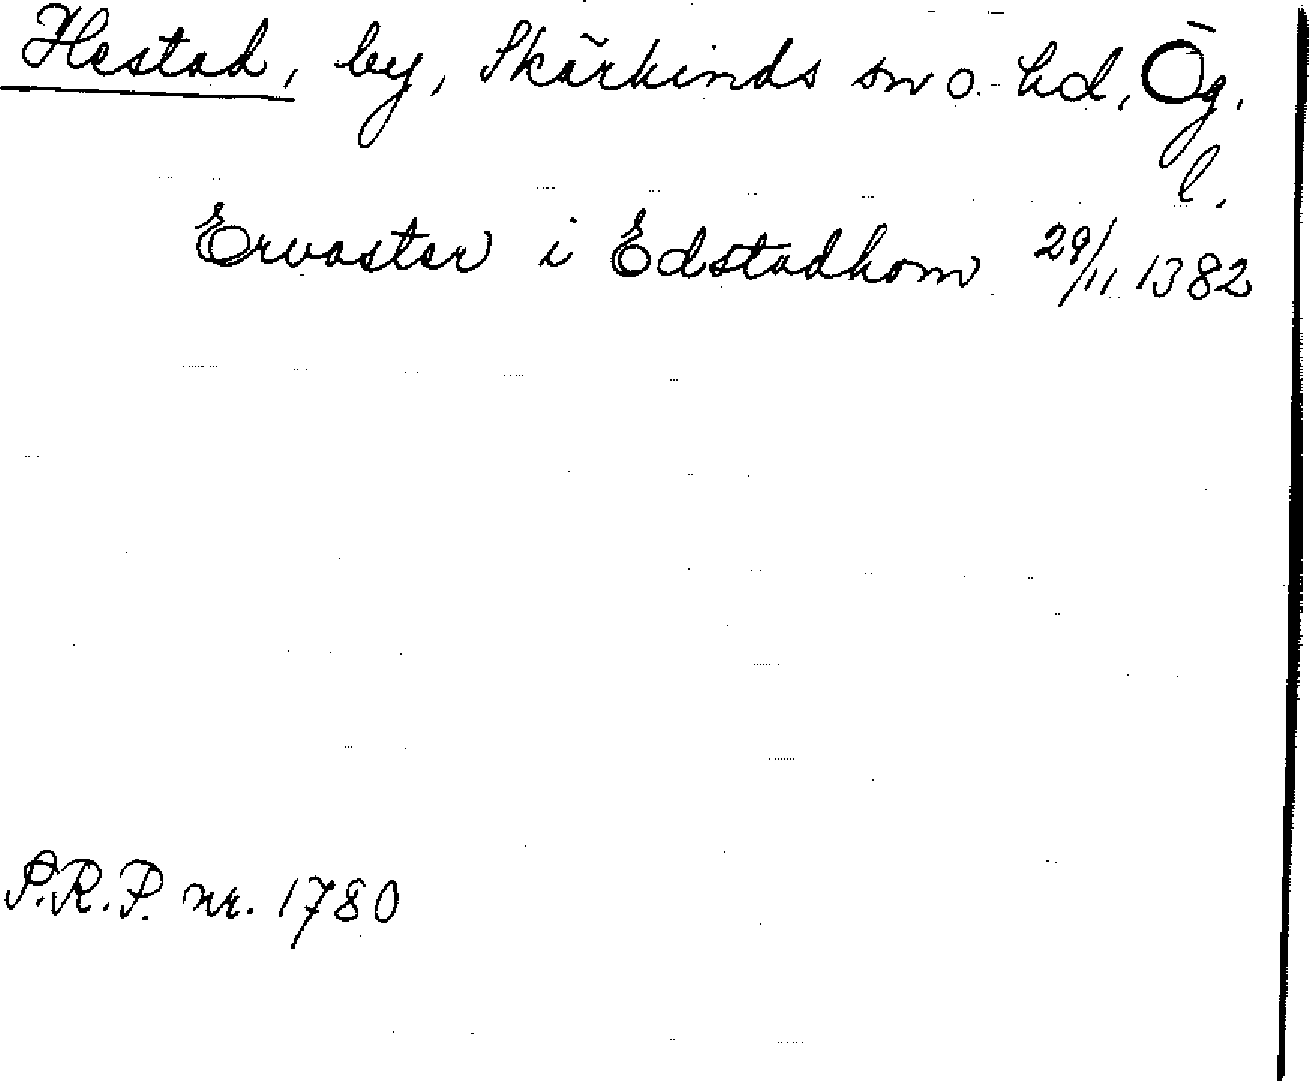 Hestad, by, Skärkinds sn o. hd, Ög.
l.
Ervaster i Edstadhom 29/11 1382
P.R.P. nr. 1780